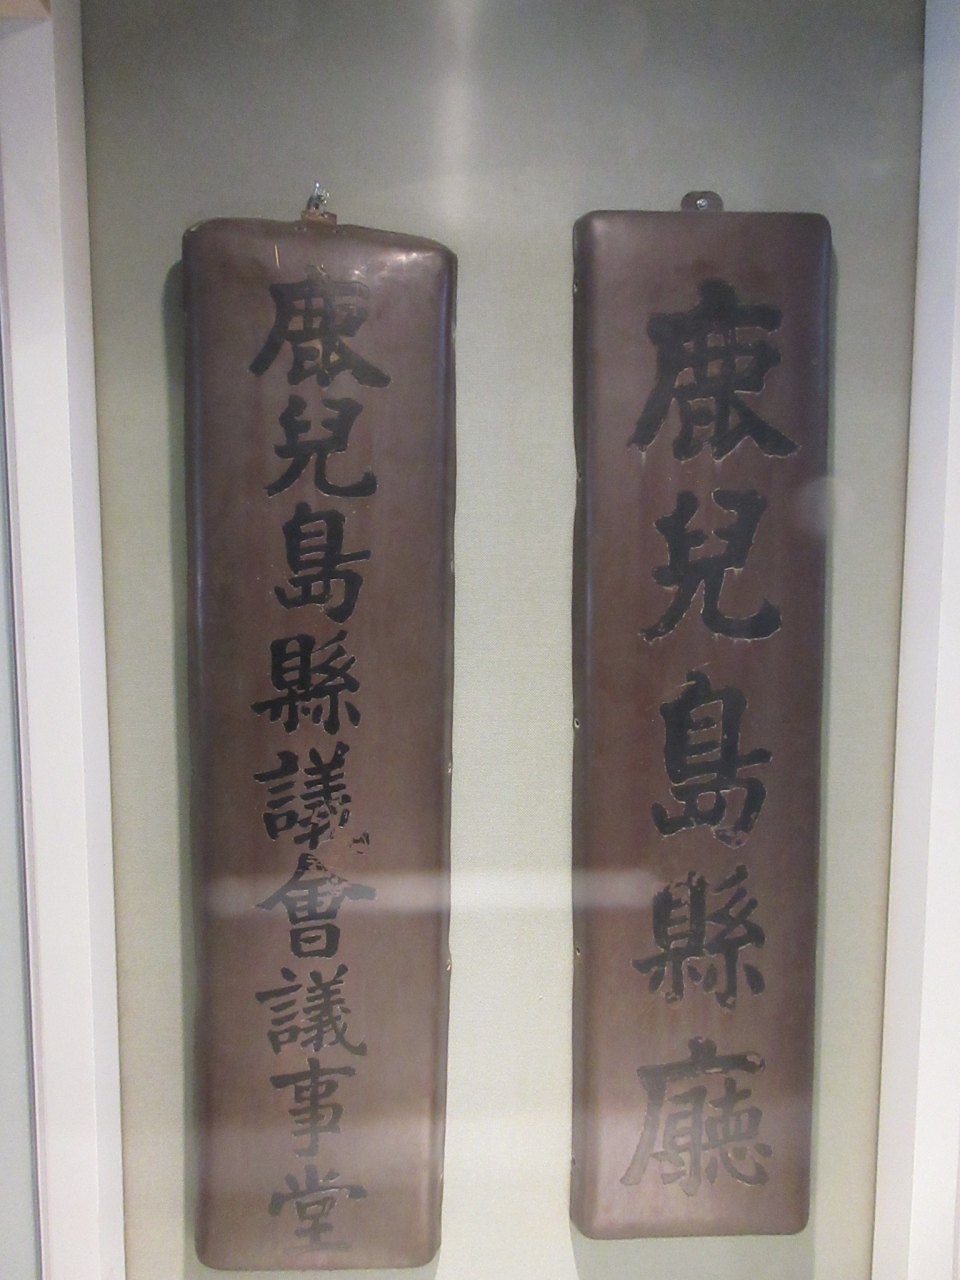 鹿兒島縣廳
鹿兒島縣議會議事堂